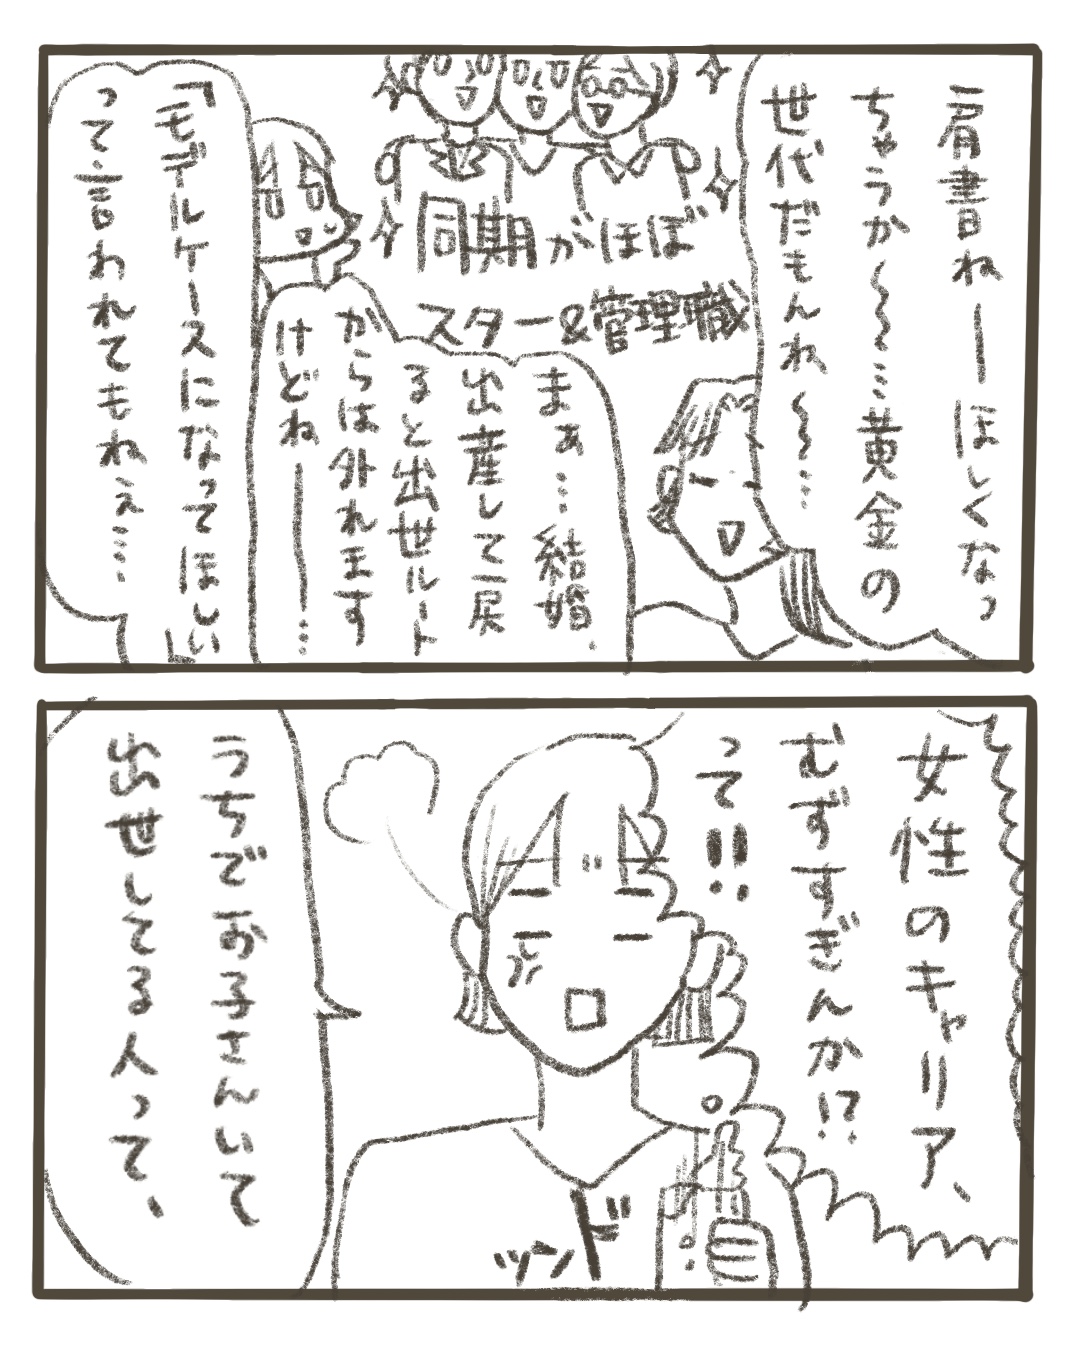 肩書ねーほしくなっ
ちゃうか〜〜…黄金の
世代だもんね〜〜…
同期がほぼ
スター&管理職
まぁ…結婚、
出産して戻
ると出世ルート
からは外れます
けどね――…
「モデルケースになってほしい」
って言われてもねぇ……
女性のキャリア、
むずすぎんか!?
って!!
ドンッ
うちでお子さんいて
出世してる人って、